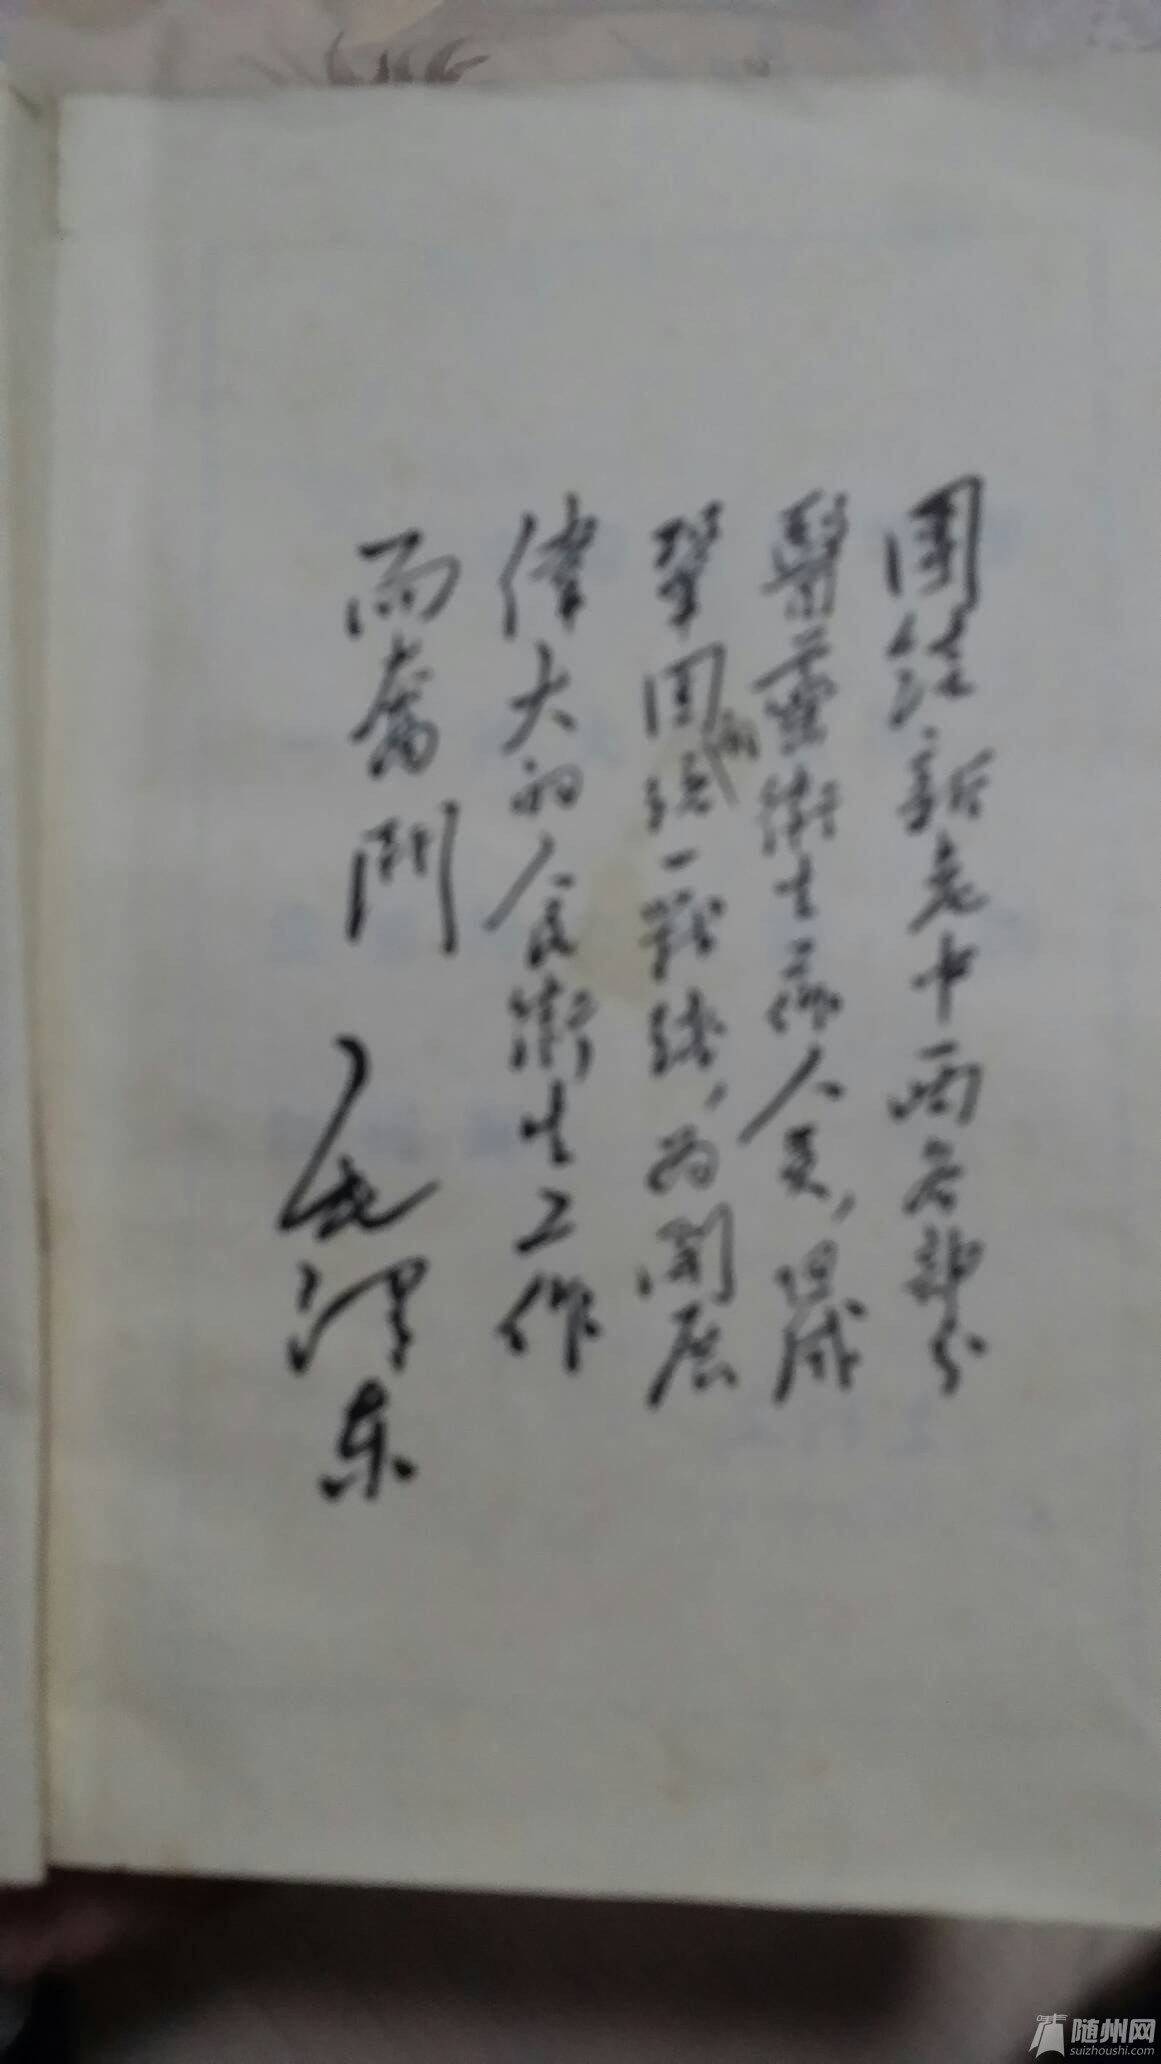 团结新老中西各部分
醫藥衛生工作人员，组成
鞏固的统一战线，为開展
偉大的人民衛生工作
而奮鬥
毛泽东
随州网
suizhoushi.com